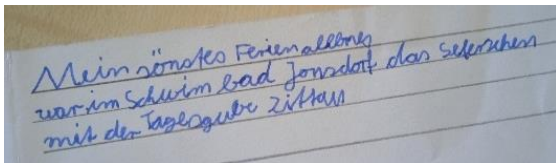 Mein sönstes Ferienallebnes
war im Schwim bad Jonsdorf das
mit der Tagesgube Zittau